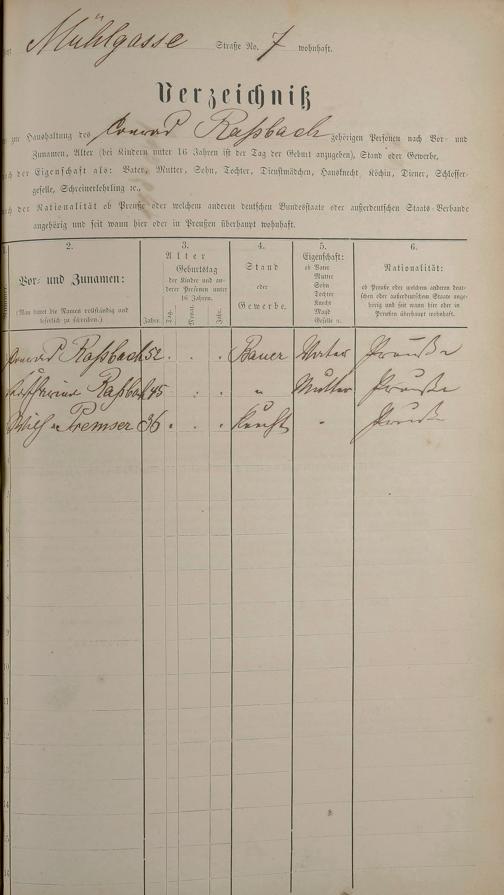 Mühlgasse Straße No. 7 wohnhaft.
Verzeichniß
zur Haushaltung des Conrad Raßbach gehörigen Personen nach Vor- und
Zunamen, Alter (bei Kindern unter 16 Jahren ist der Tag der Geburt anzugeben), Stand oder Gewerbe,
nach der Eigenschaft als: Vater, Mutter, Sohn, Tochter, Dienstmädchen, Hausknecht, Köchin, Diener, Schlosser-
geselle, Schreinerlehrling ꝛc.,
nach der Nationalität ob Preuße oder welchem anderen deutschen Bundesstaate oder außerdeutschen Staats-Verbande
angehörig und seit wann hier oder in Preußen überhaupt wohnhaft.
2. 3. 4. 5. 6.
Vor- und Zunamen:
(Man bittet die Namen vollständig und
leserlich zu schreiben.)
Alter
Geburtstag
der Kinder und an-
derer Personen unter
16 Jahren.
Jahre. Tag. Monat. Jahr.
Stand
oder
Gewerbe.
Eigenschaft:
ob Vater
Mutter
Sohn
Tochter
Knecht
Magd
Geselle ꝛc.
Nationalität:
ob Preuße oder welchem anderen deut-
schen oder außerdeutschen Staate ange-
hörig und seit wann hier oder in
Preußen überhaupt wohnhaft.
Conrad Raßbach 52 . . . Bauer Vater Preuße
Katharine Raßbach 45 . . „ Mutter Preuße
Premser 36 . . . Knecht - Preuße
5
6
7
8
9
10
11
12
13
14
15
16